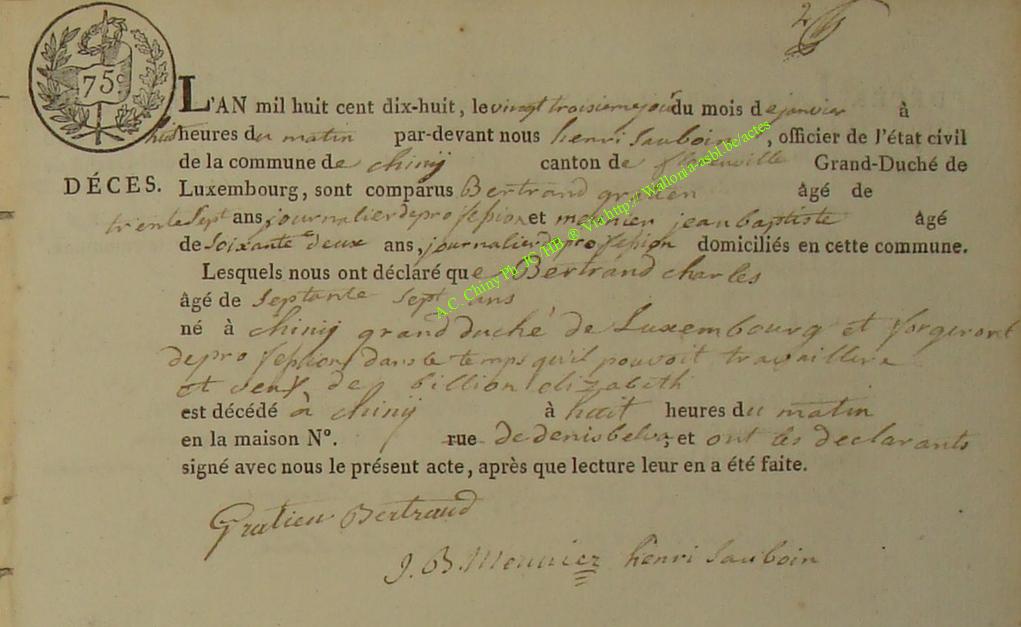 2
75c
L'AN mil huit cent dix-huit, le vingt troisieme jour du mois de janvier à
huit heures du matin par-devant nous henri Sauboin, officier de l'état civil
de la commune de chinÿ canton de florenville Grand-Duché de
DÉCES. Luxembourg, sont comparus Bertrand gratien âgé de
trente Sept ans, journalier de profession et meunier jean baptiste âgé
de Soixante deux ans, journalier de profession domiciliés en cette commune.
Lesquels nous ont déclaré que Bertrand charles
âgé de Septante Sept ans
né à chinÿ grand duché de Luxembourg et forgeront
de profession dans le temps qu'il pouvoit travaillere
et veuf de billion elizabeth
est décédé à chinÿ à huit heures du matin
en la maison N°. rue de denis belva, et ont les declarants
signé avec nous le présent acte, après que lecture leur en a été faite.
Gratien Bertrand
J. B. Meunier henri Sauboin
A.C. Chiny Ph. JC/HB ® Via http://Wallonia-asbl.be/actes